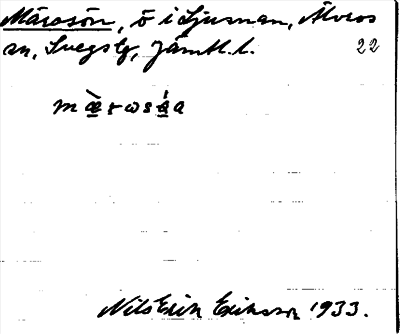 Märasön, ö i Ljusnan, Älvros
sn, Svegs tg, Jämtl. l. 22
m æ̀ r ω s ǻ a
Nils Erik Eriksson 1933.